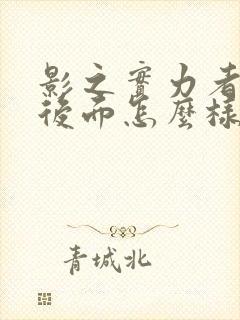 影之實力者
後而怎麼樣
青城北